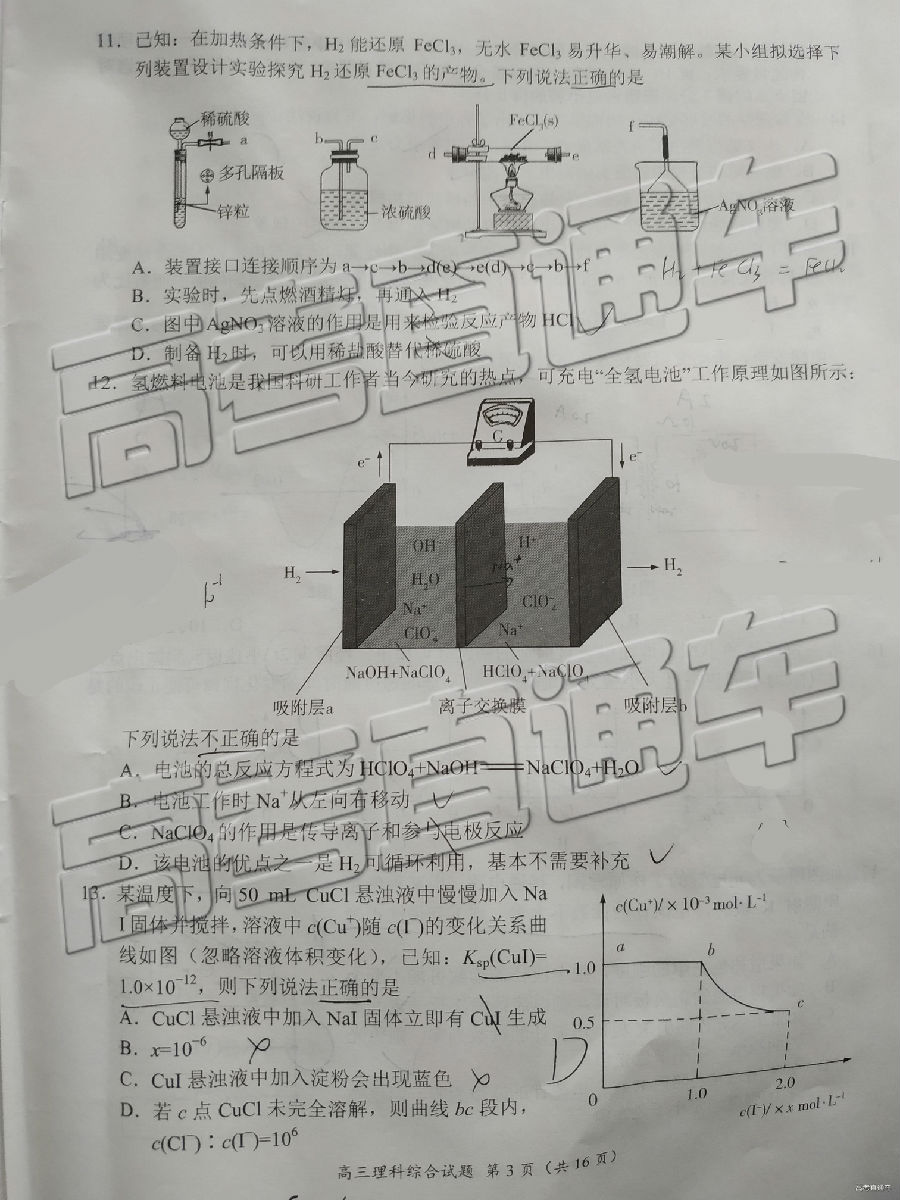 11．已知：在加热条件下，H₂能还原 FeCl₃，无水 FeCl₃易升华、易潮解。某小组拟选择下
列装置设计实验探究H₂还原FeCl₃的产物。下列说法正确的是
稀硫酸
a
多孔隔板
锌粒
b
c
浓硫酸
FeCl₃(s)
d
e
f
AgNO₃溶液
A．装置接口连接顺序为a→c→b→d(e)→e(d)→c→b→f
H₂+FeCl₃=FeCl₂
B．实验时，先点燃酒精灯，再通入H₂
C．图中AgNO₃溶液的作用是用来检验反应产物HCl
D．制备H₂时，可以用稀盐酸替代稀硫酸
12．氢燃料电池是我国科研工作者当今研究的热点，可充电“全氢电池”工作原理如图所示：
G
e⁻
e⁻
H₂
OH⁻
H₂O
Na⁺
ClO₄⁻
H⁺
Na⁺
ClO₄⁻
Na⁺
H₂
NaOH+NaClO₄
HClO₄+NaClO₄
吸附层a
离子交换膜
吸附层b
下列说法不正确的是
A．电池的总反应方程式为HClO₄+NaOH══NaClO₄+H₂O
B．电池工作时Na⁺从左向右移动
C．NaClO₄的作用是传导离子和参与电极反应
D．该电池的优点之一是H₂可循环利用，基本不需要补充
13．某温度下，向50 mL CuCl悬浊液中慢慢加入Na
I固体并搅拌，溶液中c(Cu⁺)随c(I⁻)的变化关系曲
线如图（忽略溶液体积变化），已知：Ksp(CuI)=
1.0×10⁻¹²，则下列说法正确的是
A．CuCl悬浊液中加入NaI固体立即有CuI生成
B．x=10⁻⁶
C．CuI悬浊液中加入淀粉会出现蓝色
D．若c点CuCl未完全溶解，则曲线bc段内，
c(Cl⁻)∶c(I⁻)=10⁶
D
c(Cu⁺)/×10⁻³mol·L⁻¹
a
b
c
1.0
0.5
0
1.0
2.0
c(I⁻)/×x mol·L⁻¹
高三理科综合试题 第3页（共16页）
高考直通车
高考直通车
高考直通车